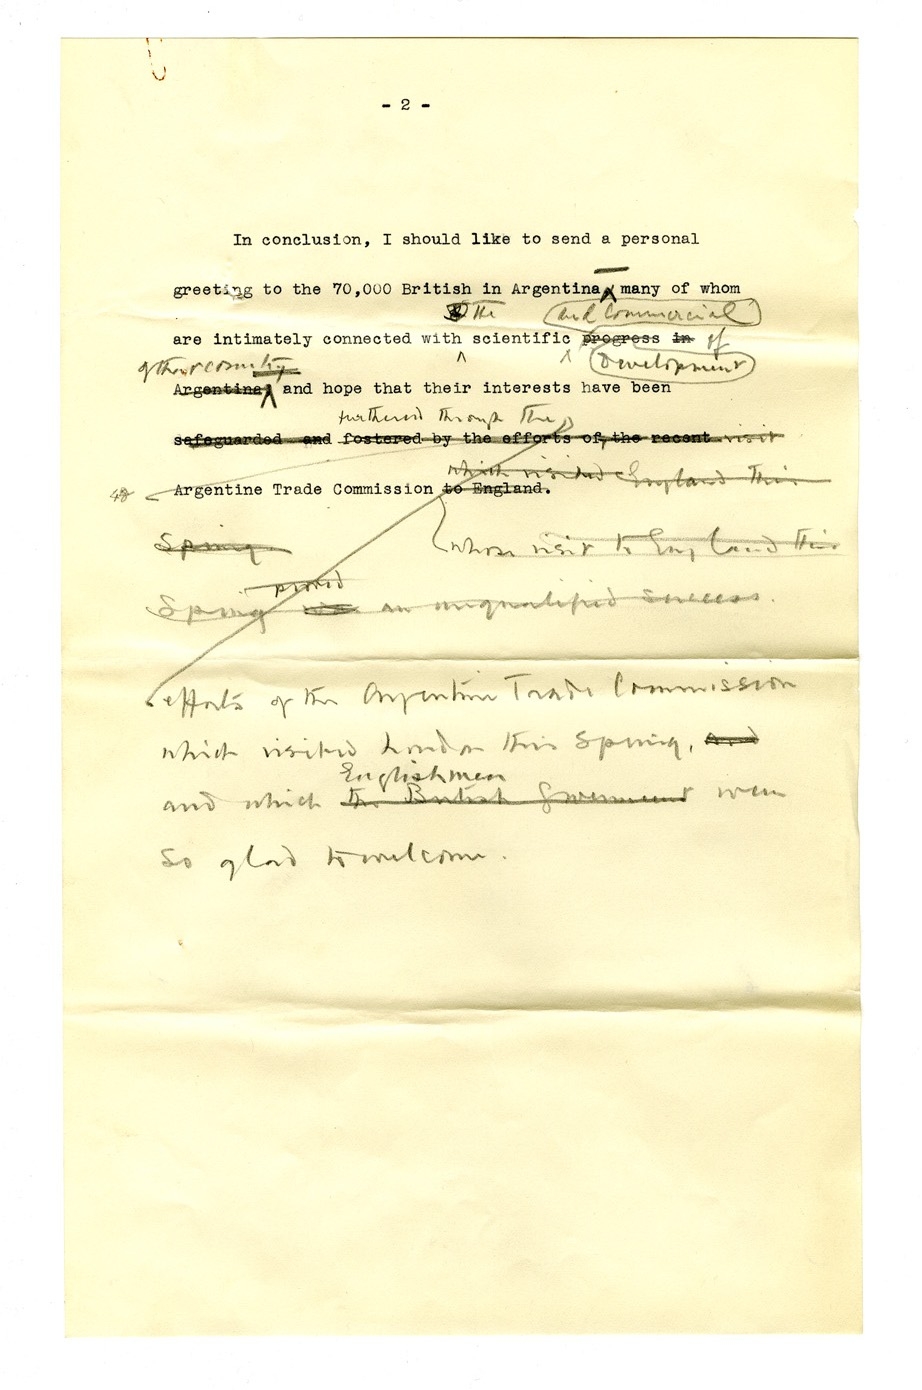 - 2 -
In conclusion, I should like to send a personal
greeting to the 70,000 British in Argentina, many of whom
the and Commercial
are intimately connected with scientific progress in of
of that country Development
Argentina, and hope that their interests have been
furthered through the
safeguarded and fostered by the efforts of, the recent visit
which visited England this
Argentine Trade Commission to England.
Spring whose visit to England this
proved
Spring was an unqualified success.
efforts of the Argentine Trade Commission
which visited London this Spring, and
Englishmen
and which the British Government were
so glad to welcome.